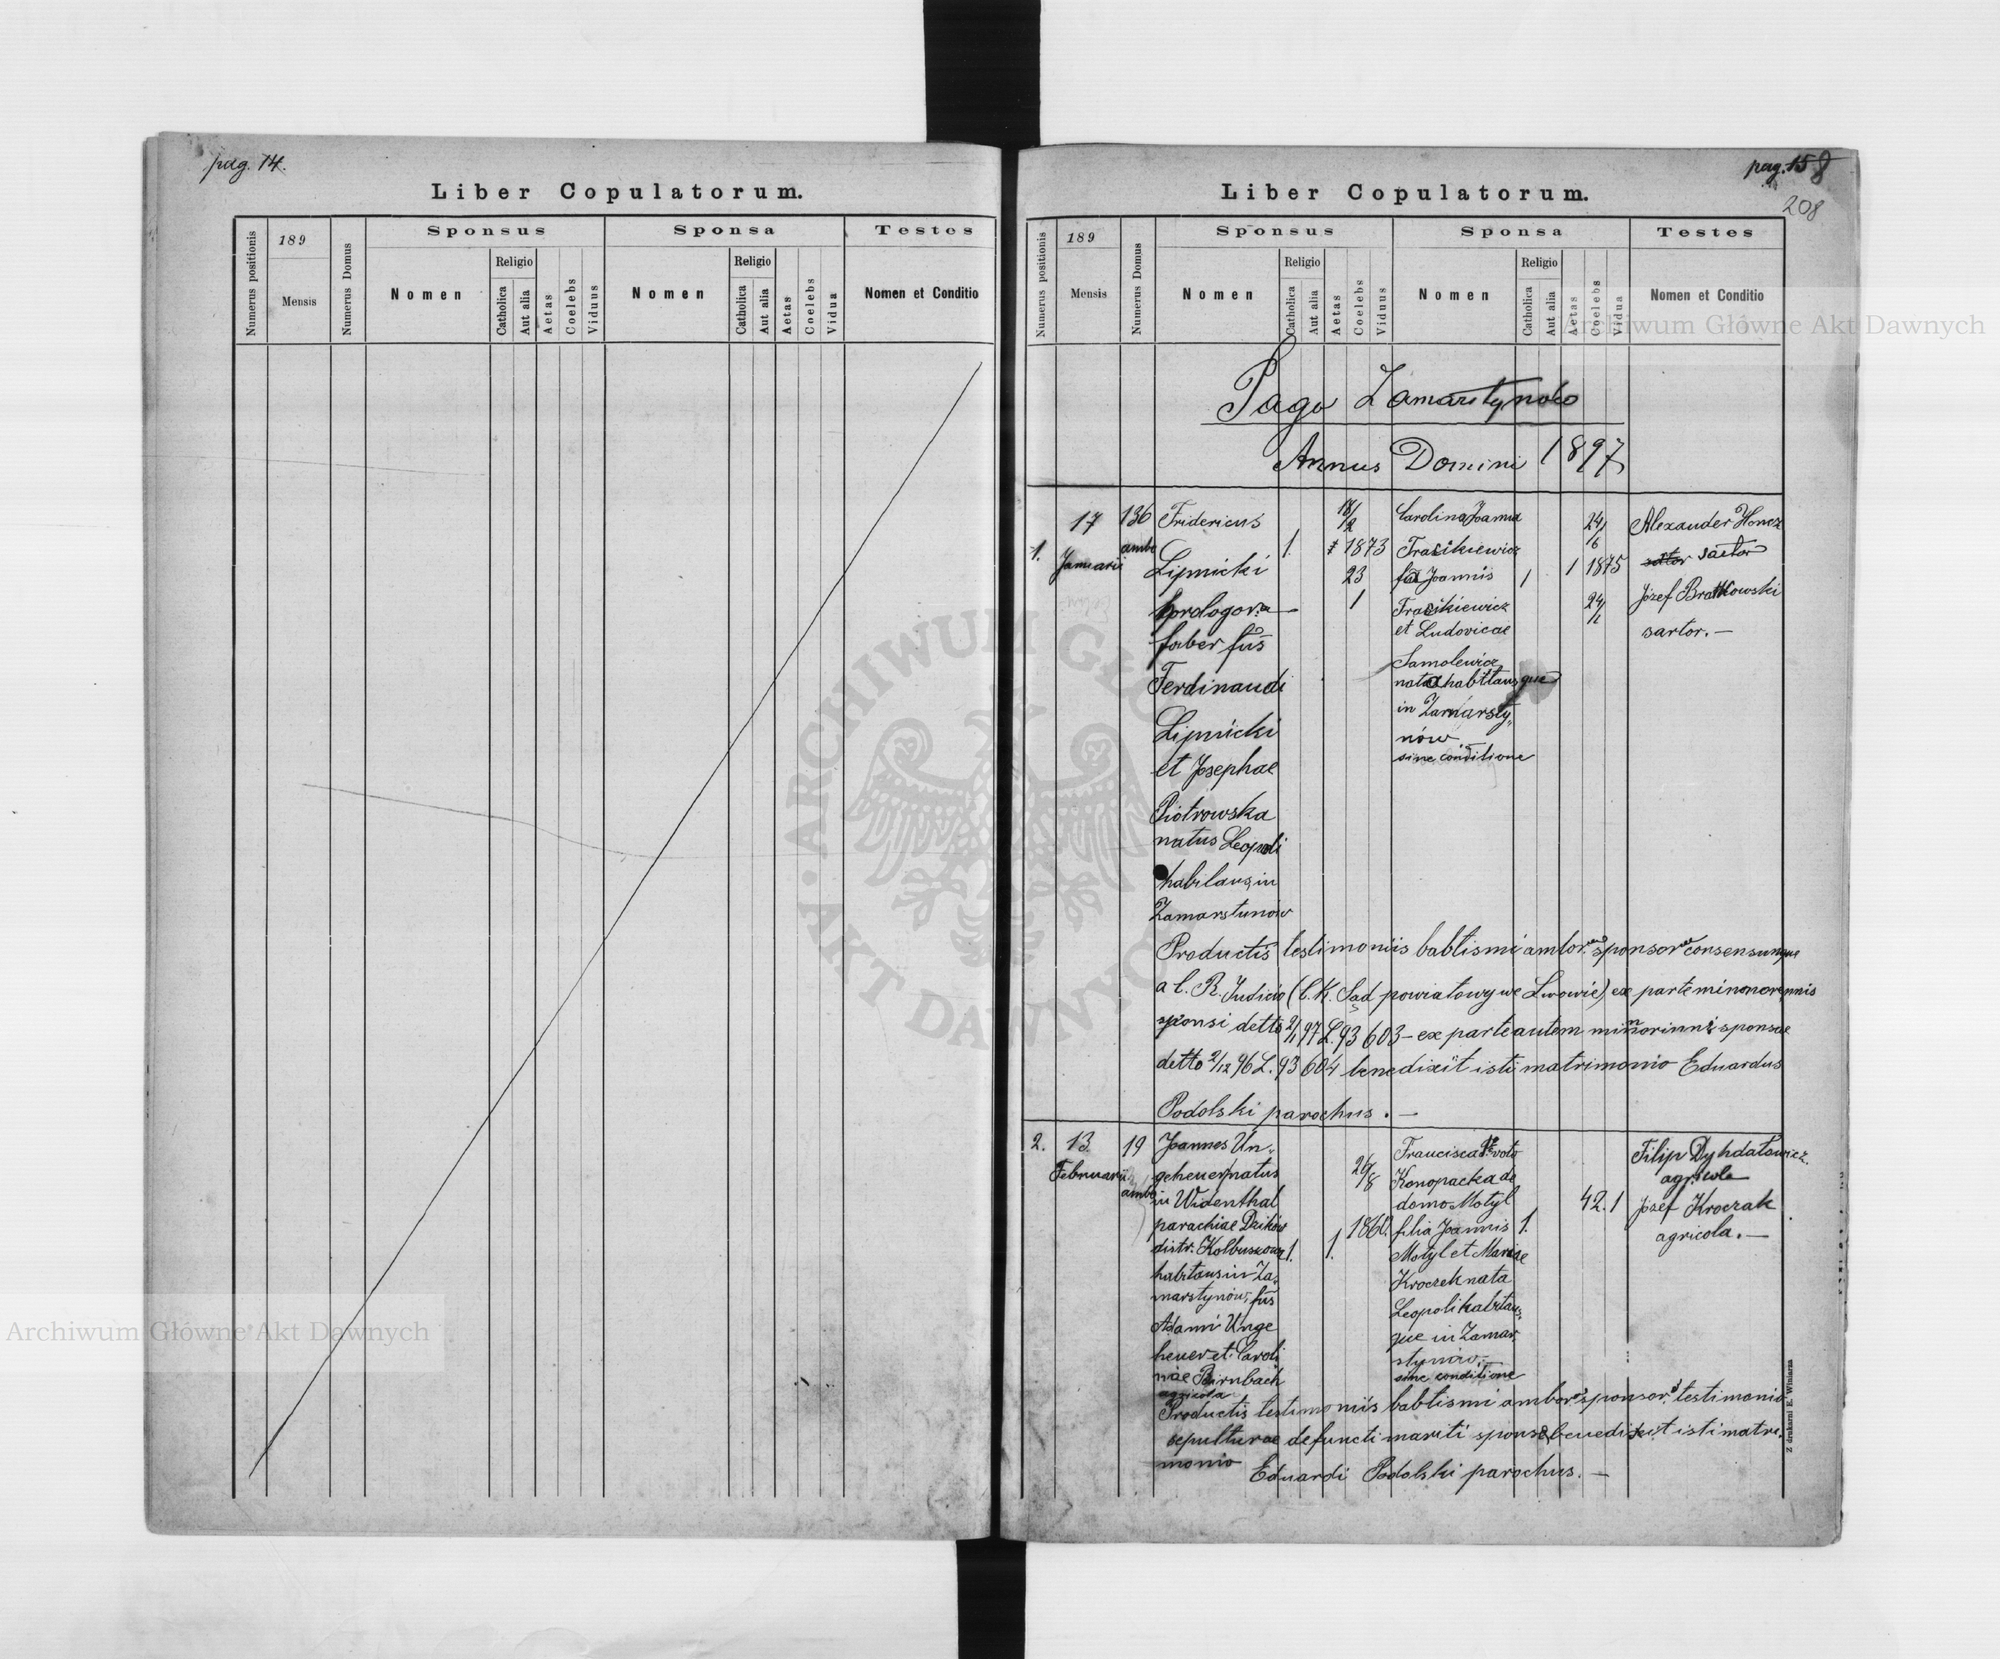 pag. 14.
Liber Copulatorum.
Numerus positionis
189
Mensis
Numerus Domus
Sponsus
Nomen
Religio
Catholica
Aut alia
Aetas
Coelebs
Viduus
Sponsa
Nomen
Religio
Catholica
Aut alia
Aetas
Coelebs
Vidua
Testes
Nomen et Conditio
pag. 15
8
208
Liber Copulatorum.
Numerus positionis
189
Mensis
Numerus Domus
Sponsus
Nomen
Religio
Catholica
Aut alia
Aetas
Coelebs
Viduus
Sponsa
Nomen
Religio
Catholica
Aut alia
Aetas
Coelebs
Vidua
Testes
Nomen et Conditio
Pago Zamarstynów
Annus Domini 1897
1.
17
Januarii
136
ambo
Fridericus
Lipnicki
faber fus
Ferdinandi
Lipnicki
et Josephae
Piotrowska
natus Leopoli
habitans in
Zamarstunów
1.
18/2
1873
23
1
Carolina Joanna
Trasikiewicz
fa Joannis
Trasikiewicz
et Ludovicae
Samolewicz
nata habitansque
in Zamarsty„
nów
sine conditione
1
1
24/6
1875
24/1
Alexander Honcz
sartor
Józef Bratkowski
sartor. —
Productis testimoniis babtismi ambor. sponsor consensumque
a C. R. Judicio (C. K. Sąd powiatowy we Lwowie) ex parte minorennis
sponsi detto 2/1 97 L. 93 603 — ex parte autem minorinnis sponsae
detto 2/12 96 L. 93 604 benedixit isti matrimonio Eduardus
Podolski parochus. —
2.
13.
Februarii
19
ambo
Joannes Un„
geheuer natus
in Widenthal
parachiae Dzików
distr. Kolbuszowa
habitans in Za„
marstynów, fus
Adami Unge
heuer et Caroli
nae Birnbach
agricola
1.
1.
26/8
1860.
Francisca 1° voto
Konopacka de
domo Motyl
filia Joannis
Motyl et Mariae
Kroczek nata
Leopoli habitans„
que in Zamar„
stynów. —
sine conditione
1.
42. 1
Filip Dyhdalowicz.
agricola
Józef Kroczak
agricola. —
Productis testimoniis babtismi ambor. sponsor. testimonio
sepulturae defuncti mariti sponsae benedixit isti matri„
monio Eduardi Podolski parochus. —
Z drukarni E. Winiarza
Archiwum Główne Akt Dawnych
Archiwum Główne Akt Dawnych
ARCHIWUM GŁÓWNE
AKT DAWNYCH